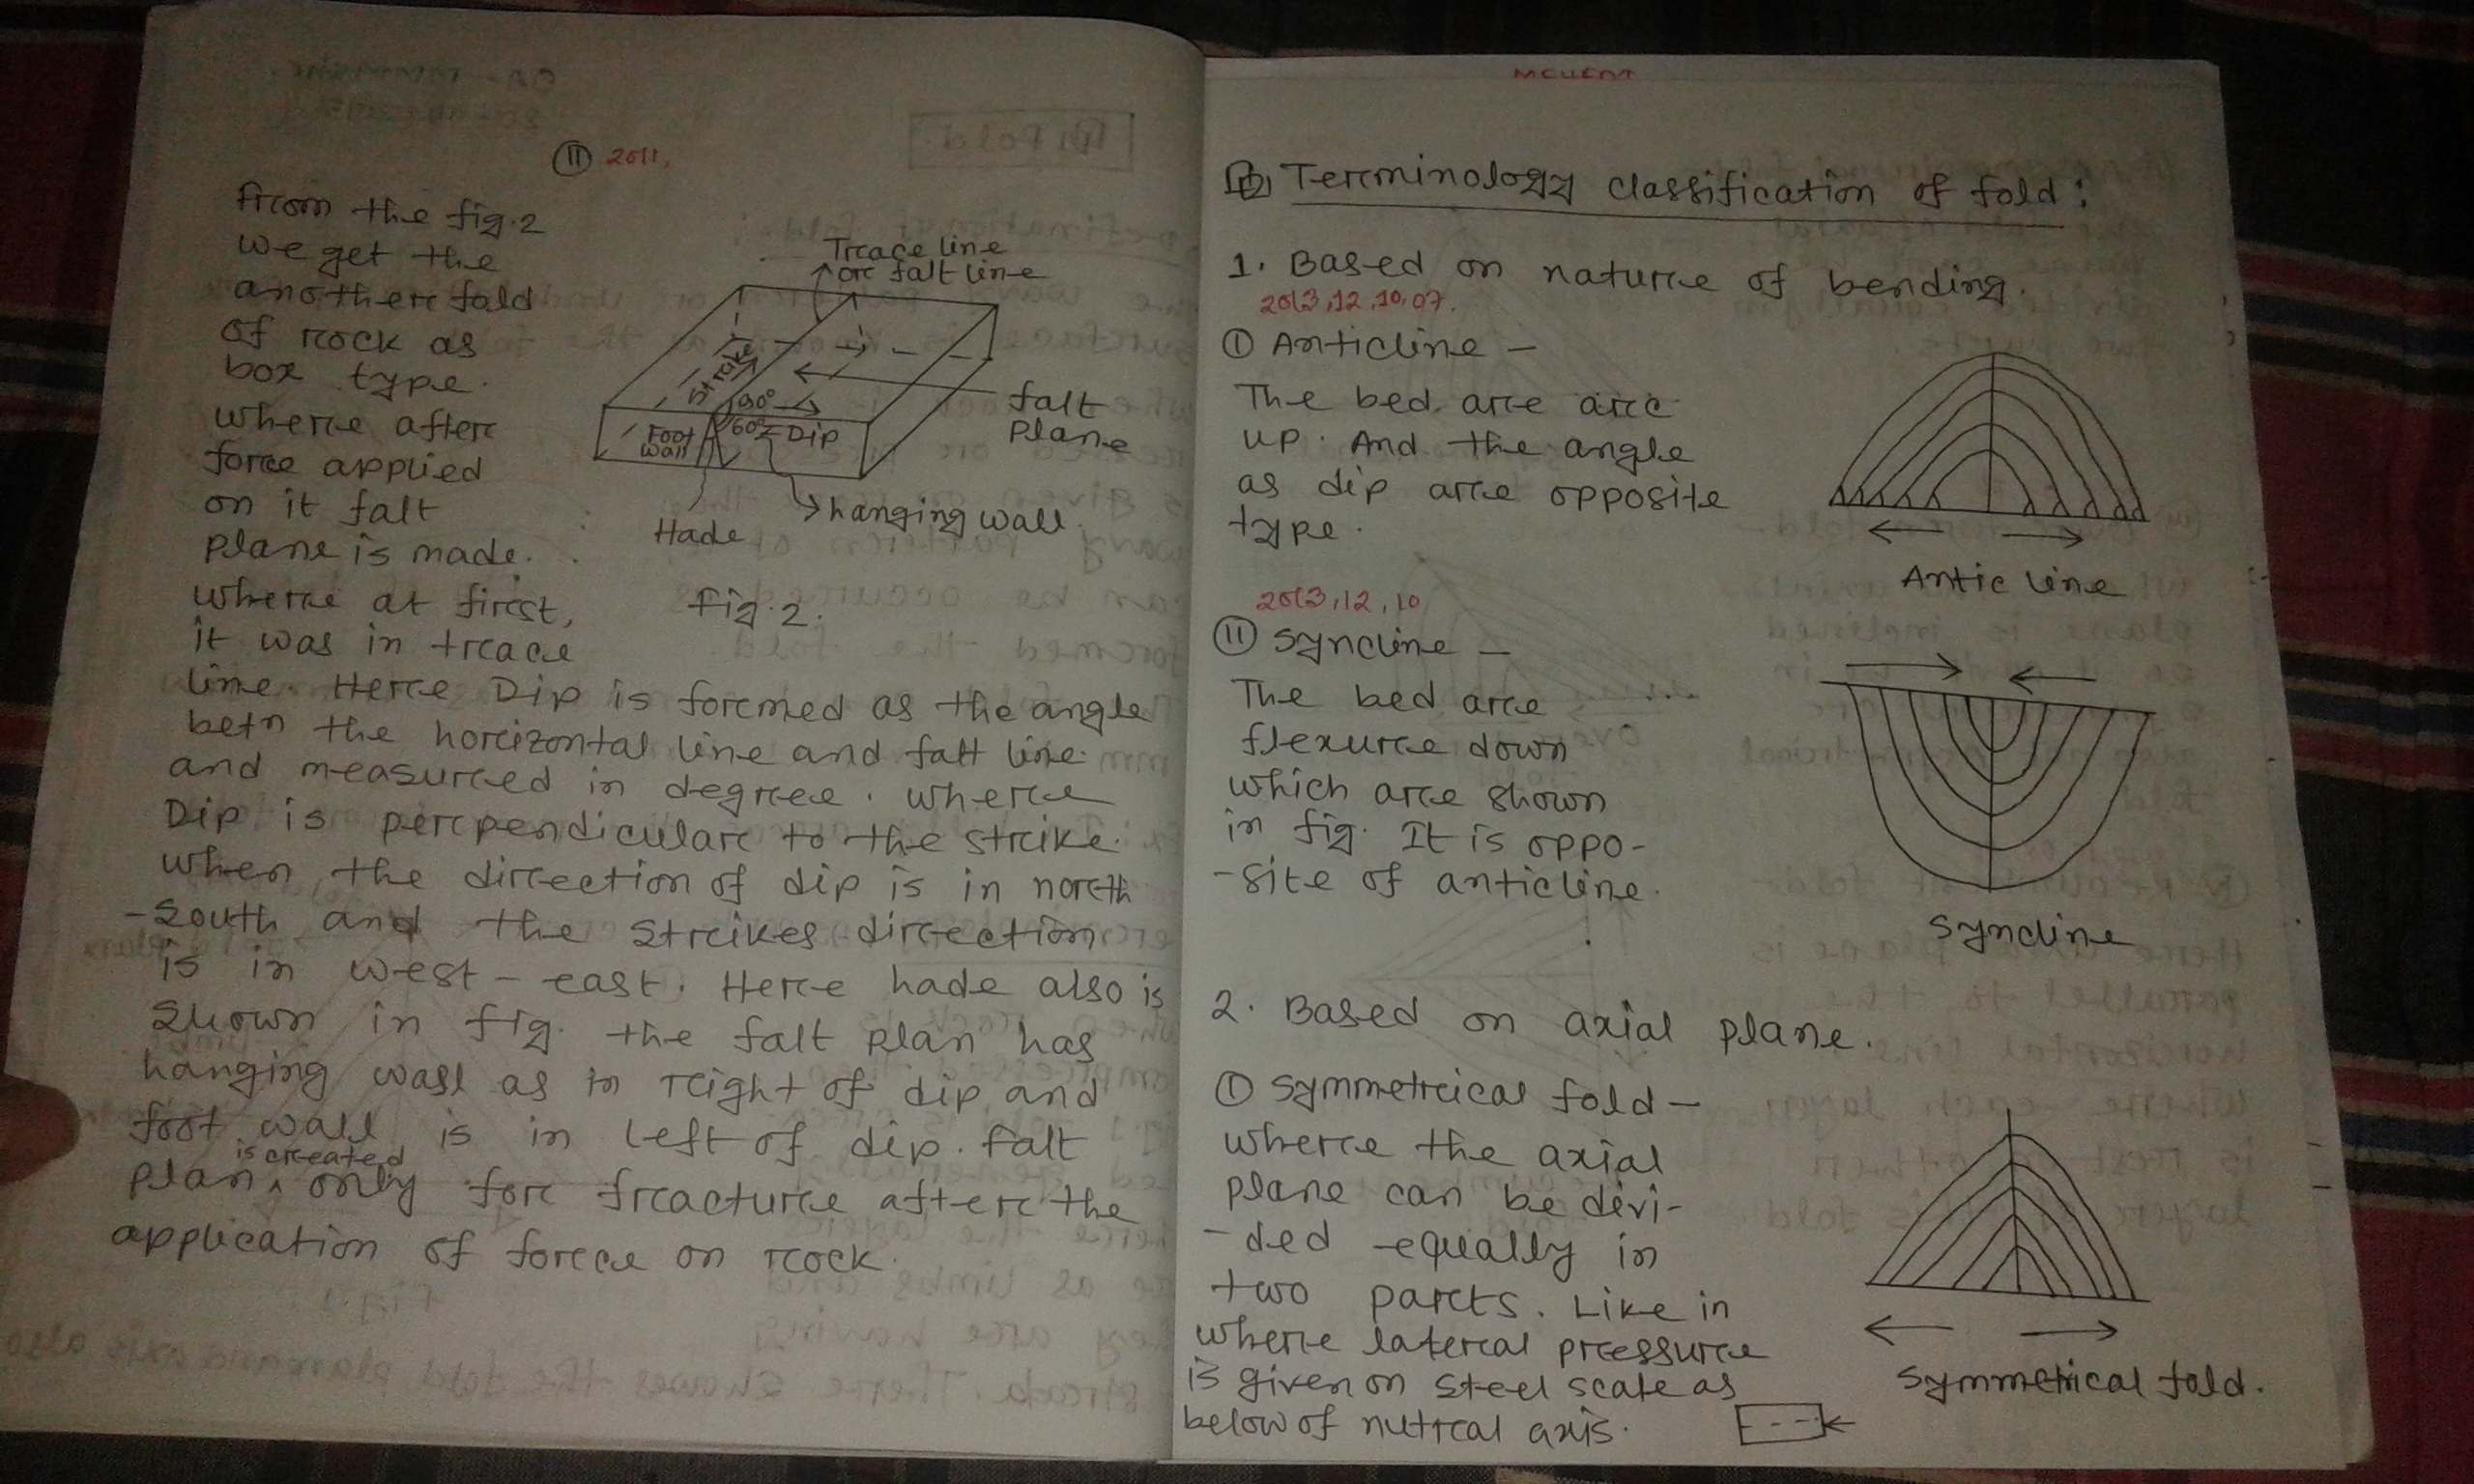 11 2011,
From the fig.2
we get the
another fold
of rock as
box type.
where after
force applied
on it falt
plane is made.
where at first,
it was in trace
line. Here Dip is formed as the angle
betn the horizontal line and falt line
and measured in degree. where
Dip is perpendicular to the strike.
when the direction of dip is in north
-south and the strikes direction
is in west - east. Here hade also is
shown in fig. the falt plan has
hanging wall as in right of dip and
foot wall is in left of dip. falt
is created
plan ^ only for fracture after the
application of force on rock.
Trace line
or falt line
strike
90°
60°
Dip
Foot
wall
falt
plane
Hade
hanging wall.
Fig.2.
Terminology classification of fold:
1. Based on nature of bending.
2013,12,10,07.
I Anticline -
The bed are arc
up. And the angle
as dip are opposite
type.
Antic line
2013,12,10
II Syncline -
The bed are
flexure down
which are shown
in fig. It is oppo-
-site of anticline.
Syncline
2. Based on axial plane.
I Symmetrical fold -
where the axial
plane can be divi-
-ded equally in
two parts. Like in
where lateral pressure
is given on steel scale as
below of nutral axis.
Symmetrical fold.